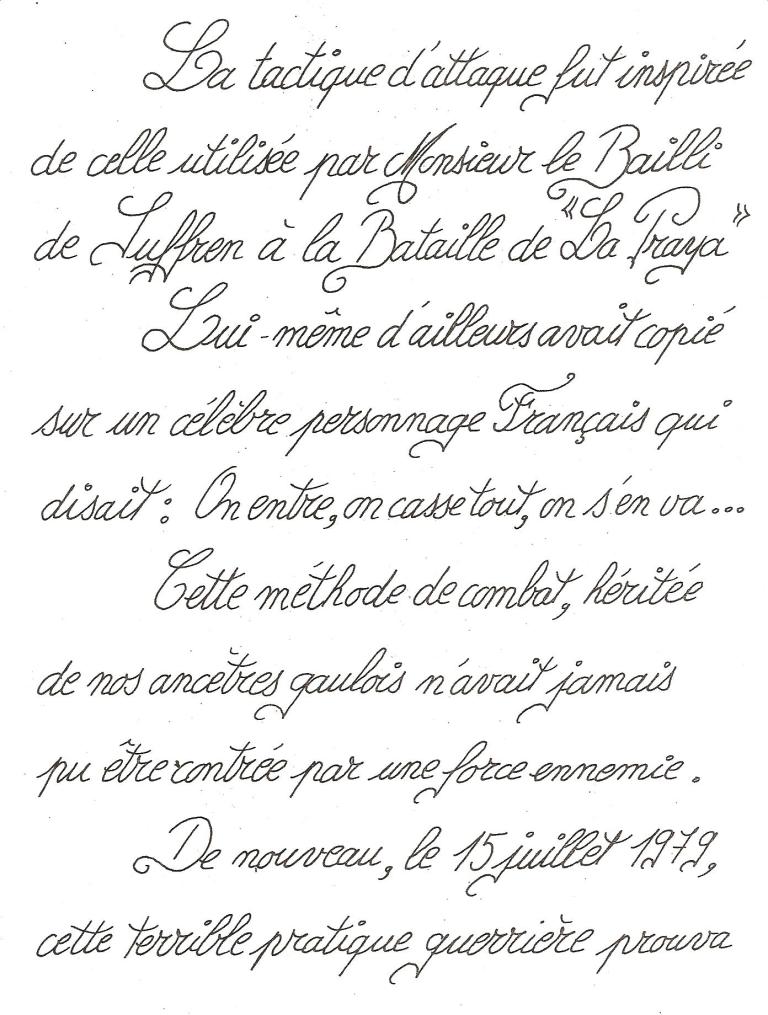 La tactique d'attaque fut inspirée
de celle utilisée par Monsieur le Bailli
de Suffren à la Bataille de "La Praya"
Lui-même d'ailleurs avait copié
sur un célèbre personnage Français qui
disait : On entre, on casse tout, on s'en va...
Cette méthode de combat, héritée
de nos ancêtres gaulois n'avait jamais
pu être contrée par une force ennemie.
De nouveau, le 15 juillet 1979,
cette terrible pratique guerrière prouva